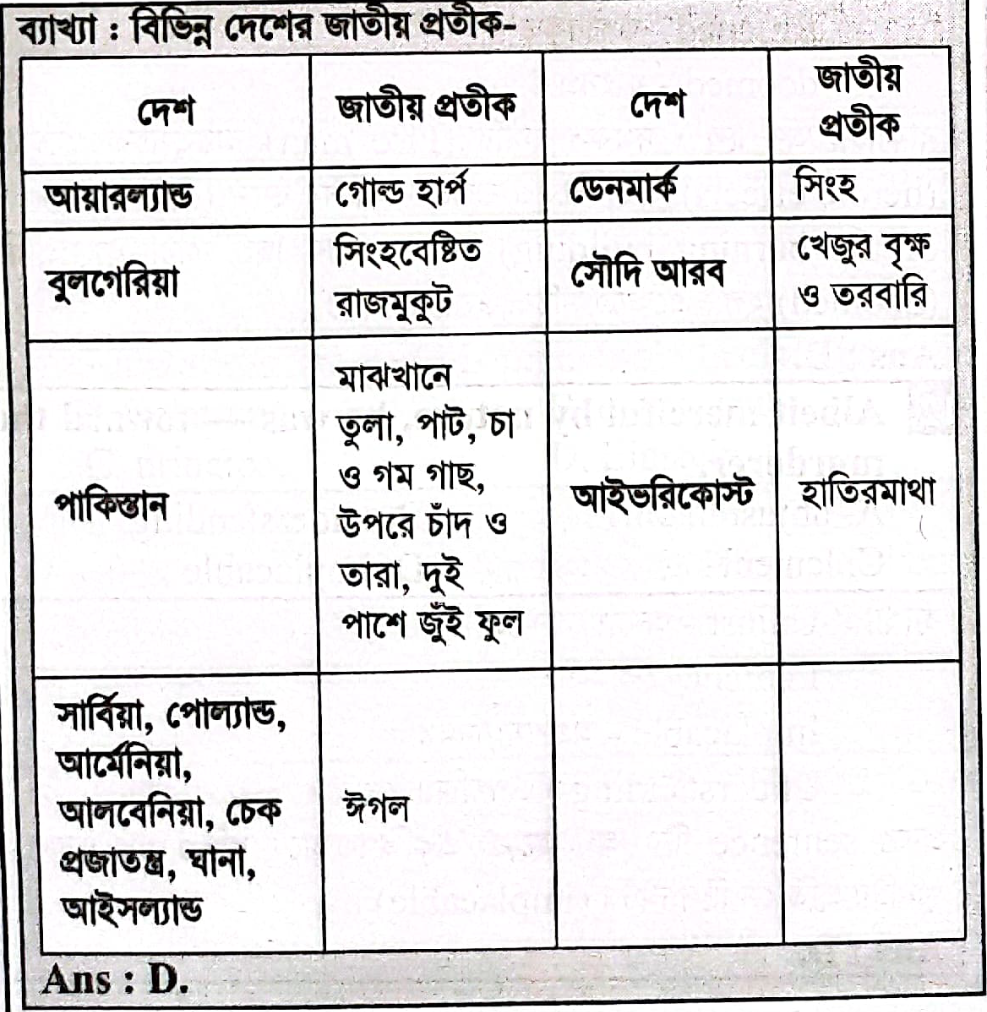 ব্যাখ্যা : বিভিন্ন দেশের জাতীয় প্রতীক-
দেশ
জাতীয় প্রতীক
দেশ
জাতীয়
প্রতীক
আয়ারল্যান্ড
গোল্ড হার্প
ডেনমার্ক
সিংহ
বুলগেরিয়া
সিংহবেষ্টিত
রাজমুকুট
সৌদি আরব
খেজুর বৃক্ষ
ও তরবারি
পাকিস্তান
মাঝখানে
তুলা, পাট, চা
ও গম গাছ,
উপরে চাঁদ ও
তারা, দুই
পাশে জুঁই ফুল
আইভরিকোস্ট
হাতিরমাথা
সার্বিয়া, পোল্যান্ড,
আর্মেনিয়া,
আলবেনিয়া, চেক
প্রজাতন্ত্র, ঘানা,
আইসল্যান্ড
ঈগল
Ans : D.